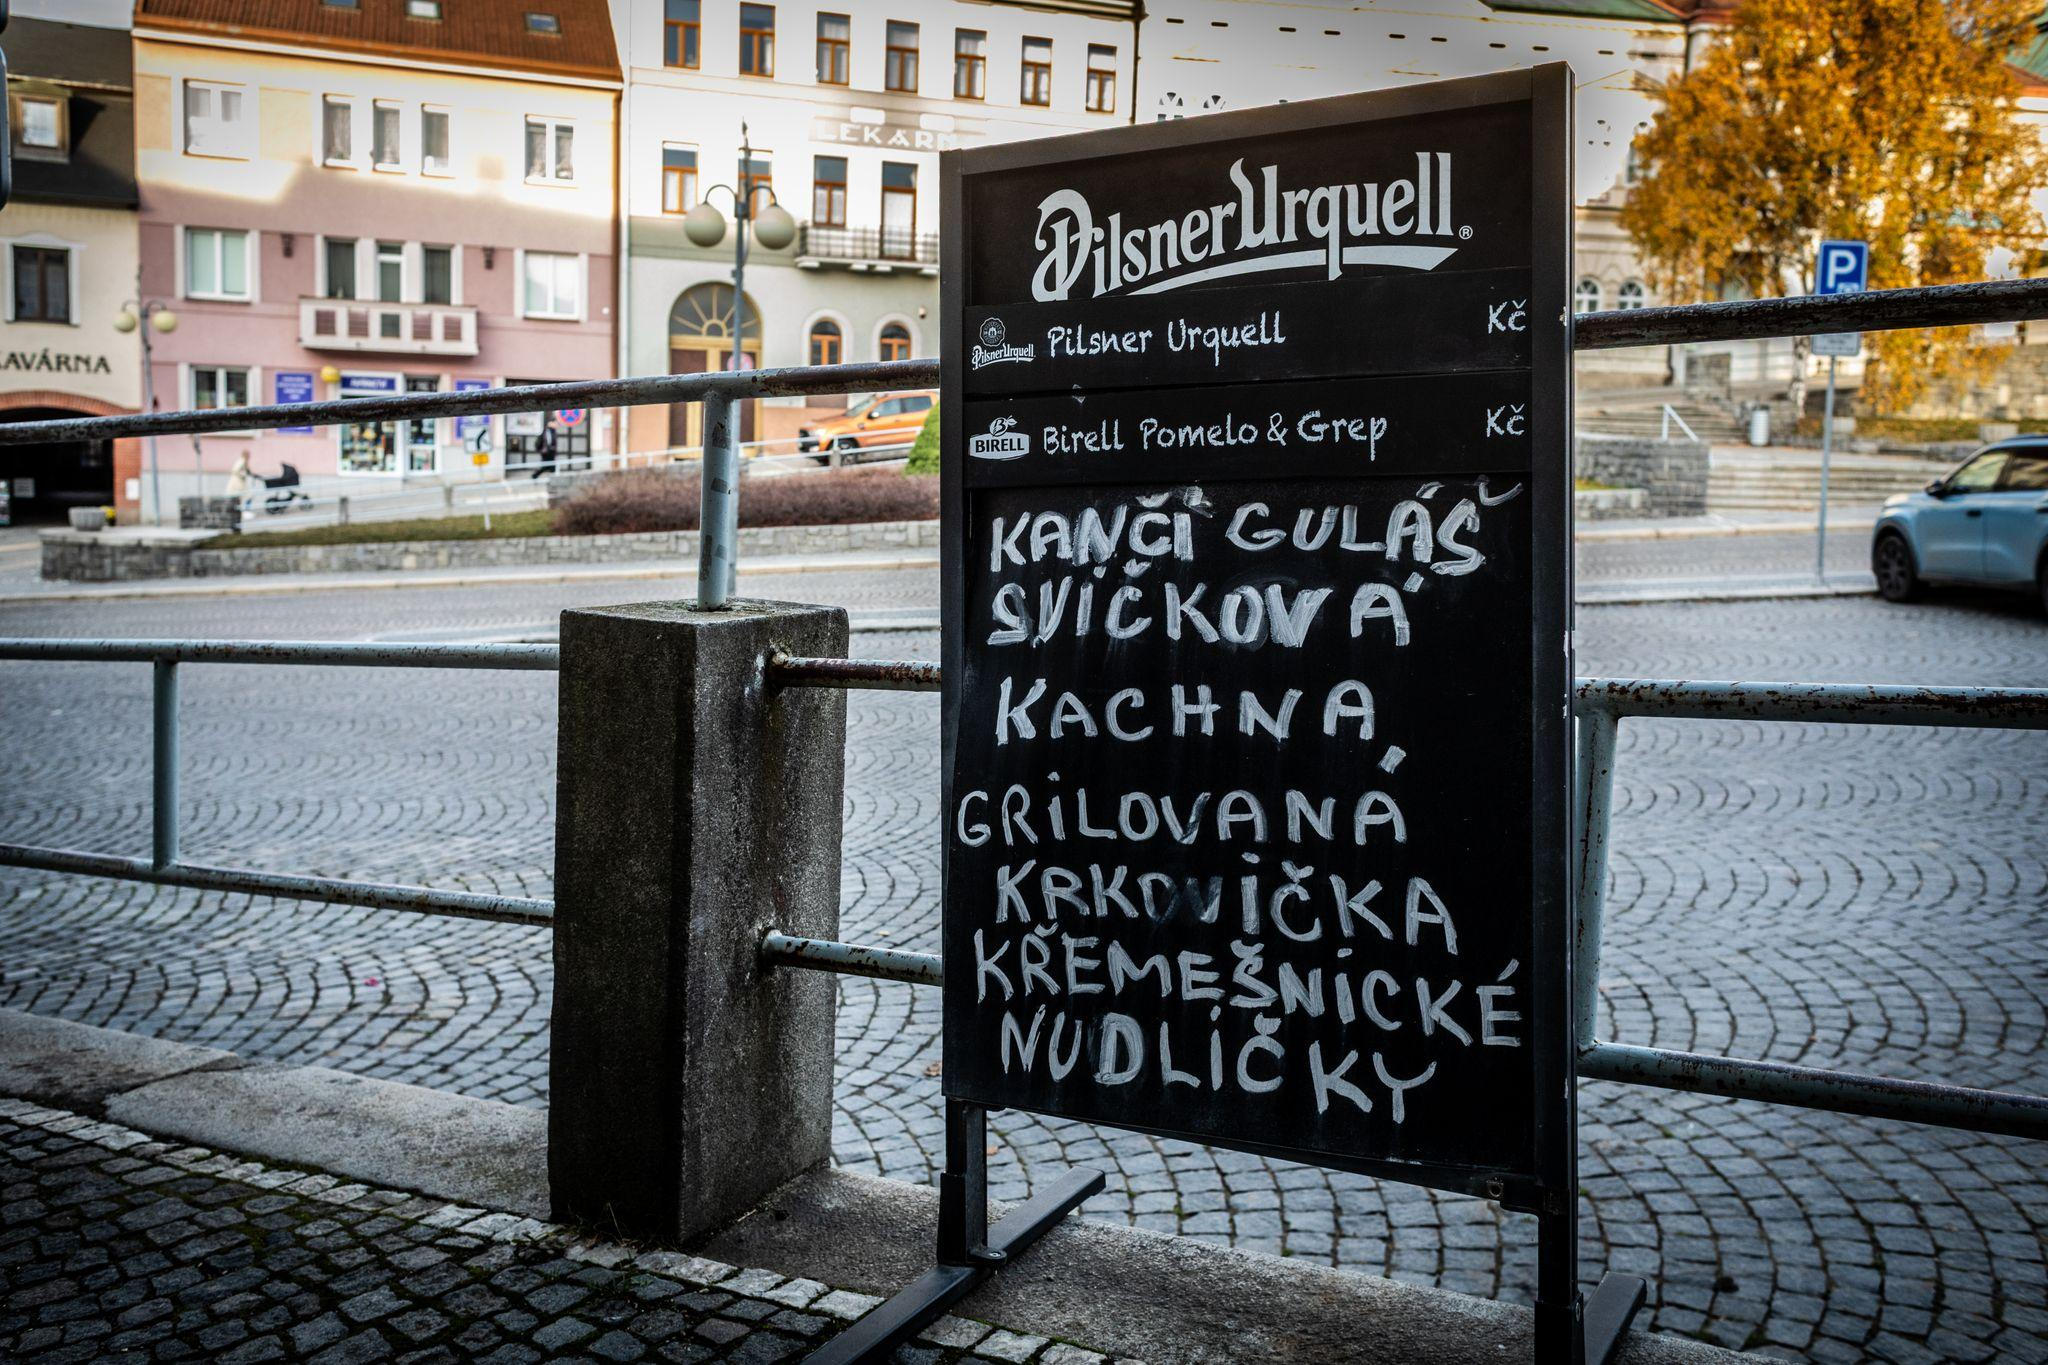 KAVÁRNA
LEKÁR
P
Pilsner Urquell ®
Pilsner Urquell
Pilsner Urquell Kč
BIRELL
Birell Pomelo & Grep Kč
KANČÍ GULÁŠ
SVÍČKOVÁ
KACHNA,
GRILOVANÁ
KRKOVIČKA
KŘEMEŠNICKÉ
NUDLIČKY